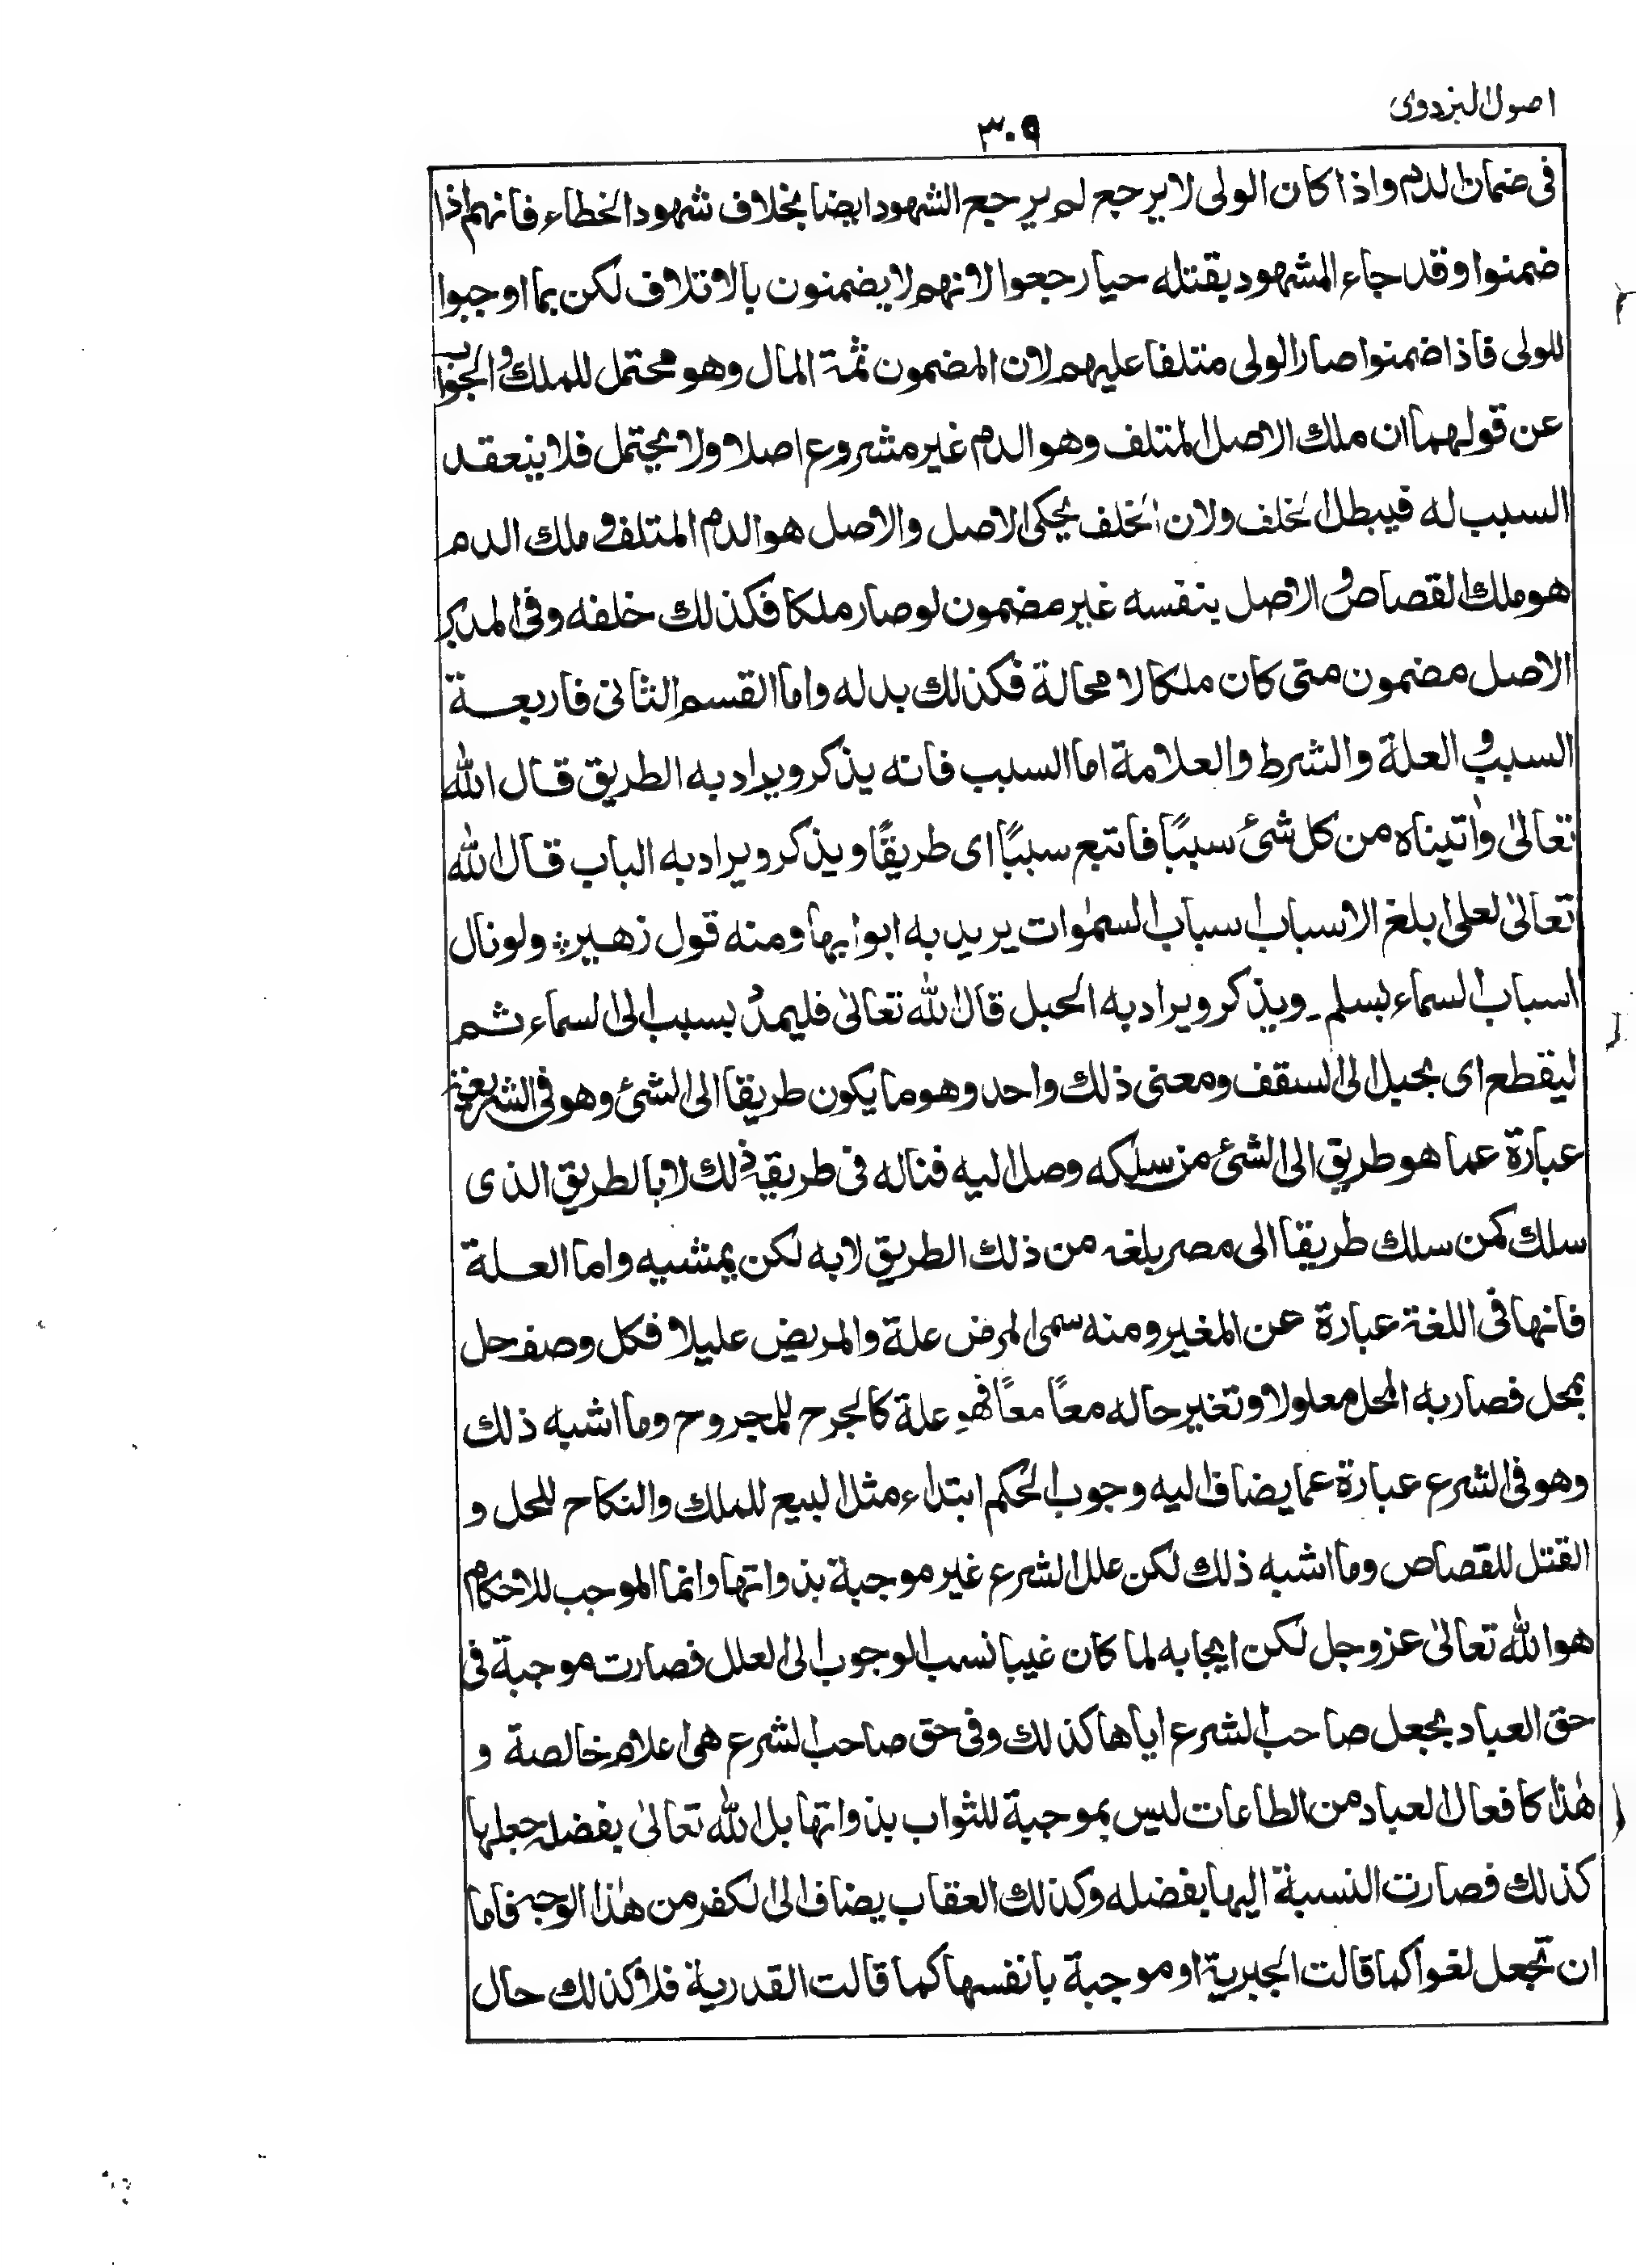 اصول البزدوى
٣٠٩
فى ضمان الدم واذا كان الولى لا يرجع لم يرجع الشهود ايضا بخلاف شهود الخطاء فانهم اذا
ضمنوا وقد جاء المشهود بقتله حيا رجعوا لانهم لا يضمنون بالاتلاف لكن بما اوجبوا
للولى فاذا ضمنوا صار الولى متلفا عليهم لان المضمون ثمة المال وهو محتمل للملك والجواب
عن قولهما ان ملك الاصل المتلف وهو الدم غير مشروع اصلا ولا يحتمل فلا ينعقد
السبب له فيبطل الخلف ولان الخلف يحكى الاصل والاصل هو الدم المتلف فى ملك الدم
هو ملك القصاص والاصل بنفسه غير مضمون لو صار ملكا فكذلك خلفه وفى المدبر
الاصل مضمون متى كان ملكا لا محالة فكذلك بدله واما القسم الثانى فاربعة
السبب والعلة والشرط والعلامة اما السبب فانه يذكر ويراد به الطريق قال الله
تعالىٰ واٰتيناه من كل شىء سببًا فاتبع سببًا اى طريقًا ويذكر ويراد به الباب قال الله
تعالىٰ لعلى ابلغ الاسباب اسباب السمٰوات يريد به ابوابها ومنه قول زهير ؞ ولو نال
اسباب السماء بسلم ـ ويذكر ويراد به الحبل قال الله تعالىٰ فليمدُد بسبب الى السماء ثم
ليقطع اى بحبل الى السقف ومعنى ذلك واحد وهو ما يكون طريقا الى الشىء وهو فى الشريعة
عبارة عما هو طريق الى الشىء من سلكه وصل اليه فناله فى طريقه ذلك لا بالطريق الذى
سلك كمن سلك طريقا الى مصر بلغه من ذلك الطريق لا به لكن بمشيه واما العلة
فانها فى اللغة عبارة عن المغير ومنه سمى المرض علة والمريض عليلا فكل وصف حل
بمحل فصار به المحل معلولا وتغير حاله معًا معًا فهو علة كالجرح للمجروح وما اشبه ذلك
وهو فى الشرع عبارة عما يضاف اليه وجوب الحكم ابتداء مثل البيع للملك والنكاح للحل و
القتل للقصاص وما اشبه ذلك لكن علل الشرع غير موجبة بذواتها وانما الموجب للاحكام
هو الله تعالىٰ عز وجل لكن ايجابه لما كان غيبا نسب الوجوب الى العلل فصارت موجبة فى
حق العباد بجعل صاحب الشرع اياها كذلك وفى حق صاحب الشرع هى اعلام خالصة و
هٰذا كافعال العباد من الطاعات ليس بموجبة للثواب بذواتها بل الله تعالىٰ بفضله جعلها
كذلك فصارت النسبة اليها بفضله وكذلك العقاب يضاف الى الكفر من هٰذا الوجه فاما
ان تجعل لغوا كما قالت الجبرية او موجبة بانفسها كما قالت القدرية فلا وكذلك حال